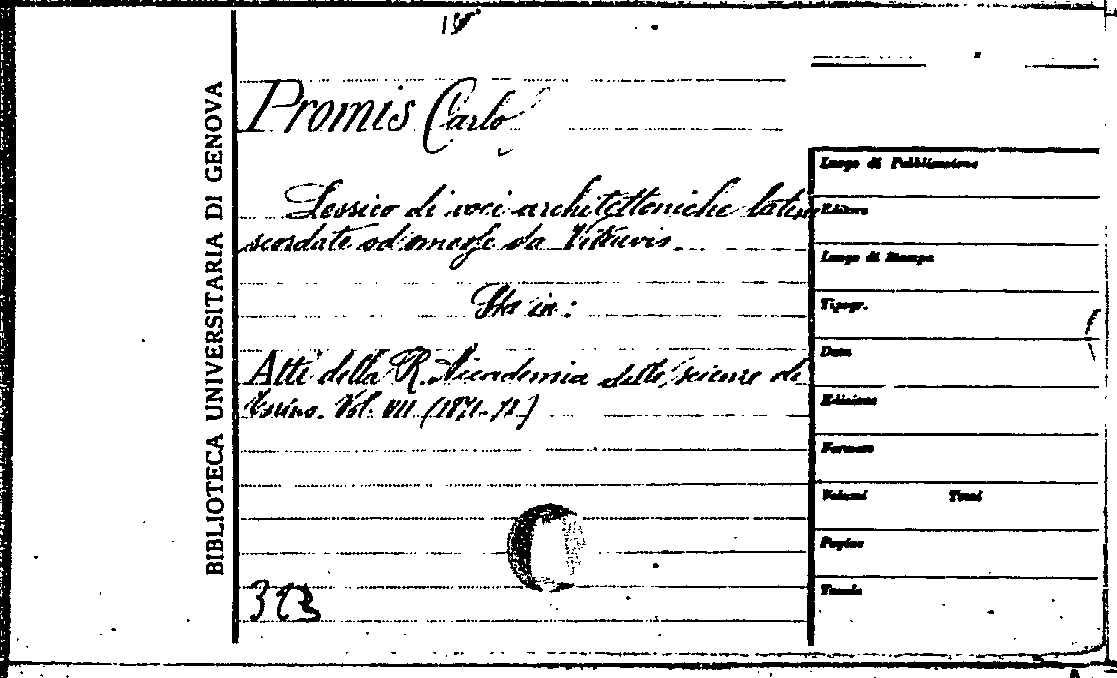 BIBLIOTECA UNIVERSITARIA DI GENOVA
Promis Carlo
Lessico di voci architettoniche latine
scordate od omesse da Vitruvio.
Sta in:
Atti della R. Accademia delle scienze di
Torino. Vol. VII (1871-72)
Luogo di Pubblicazione
Editore
Luogo di Stampa
Tipogr.
Data
Edizione
Formato
Volumi Tomi
Pagine
Tavole